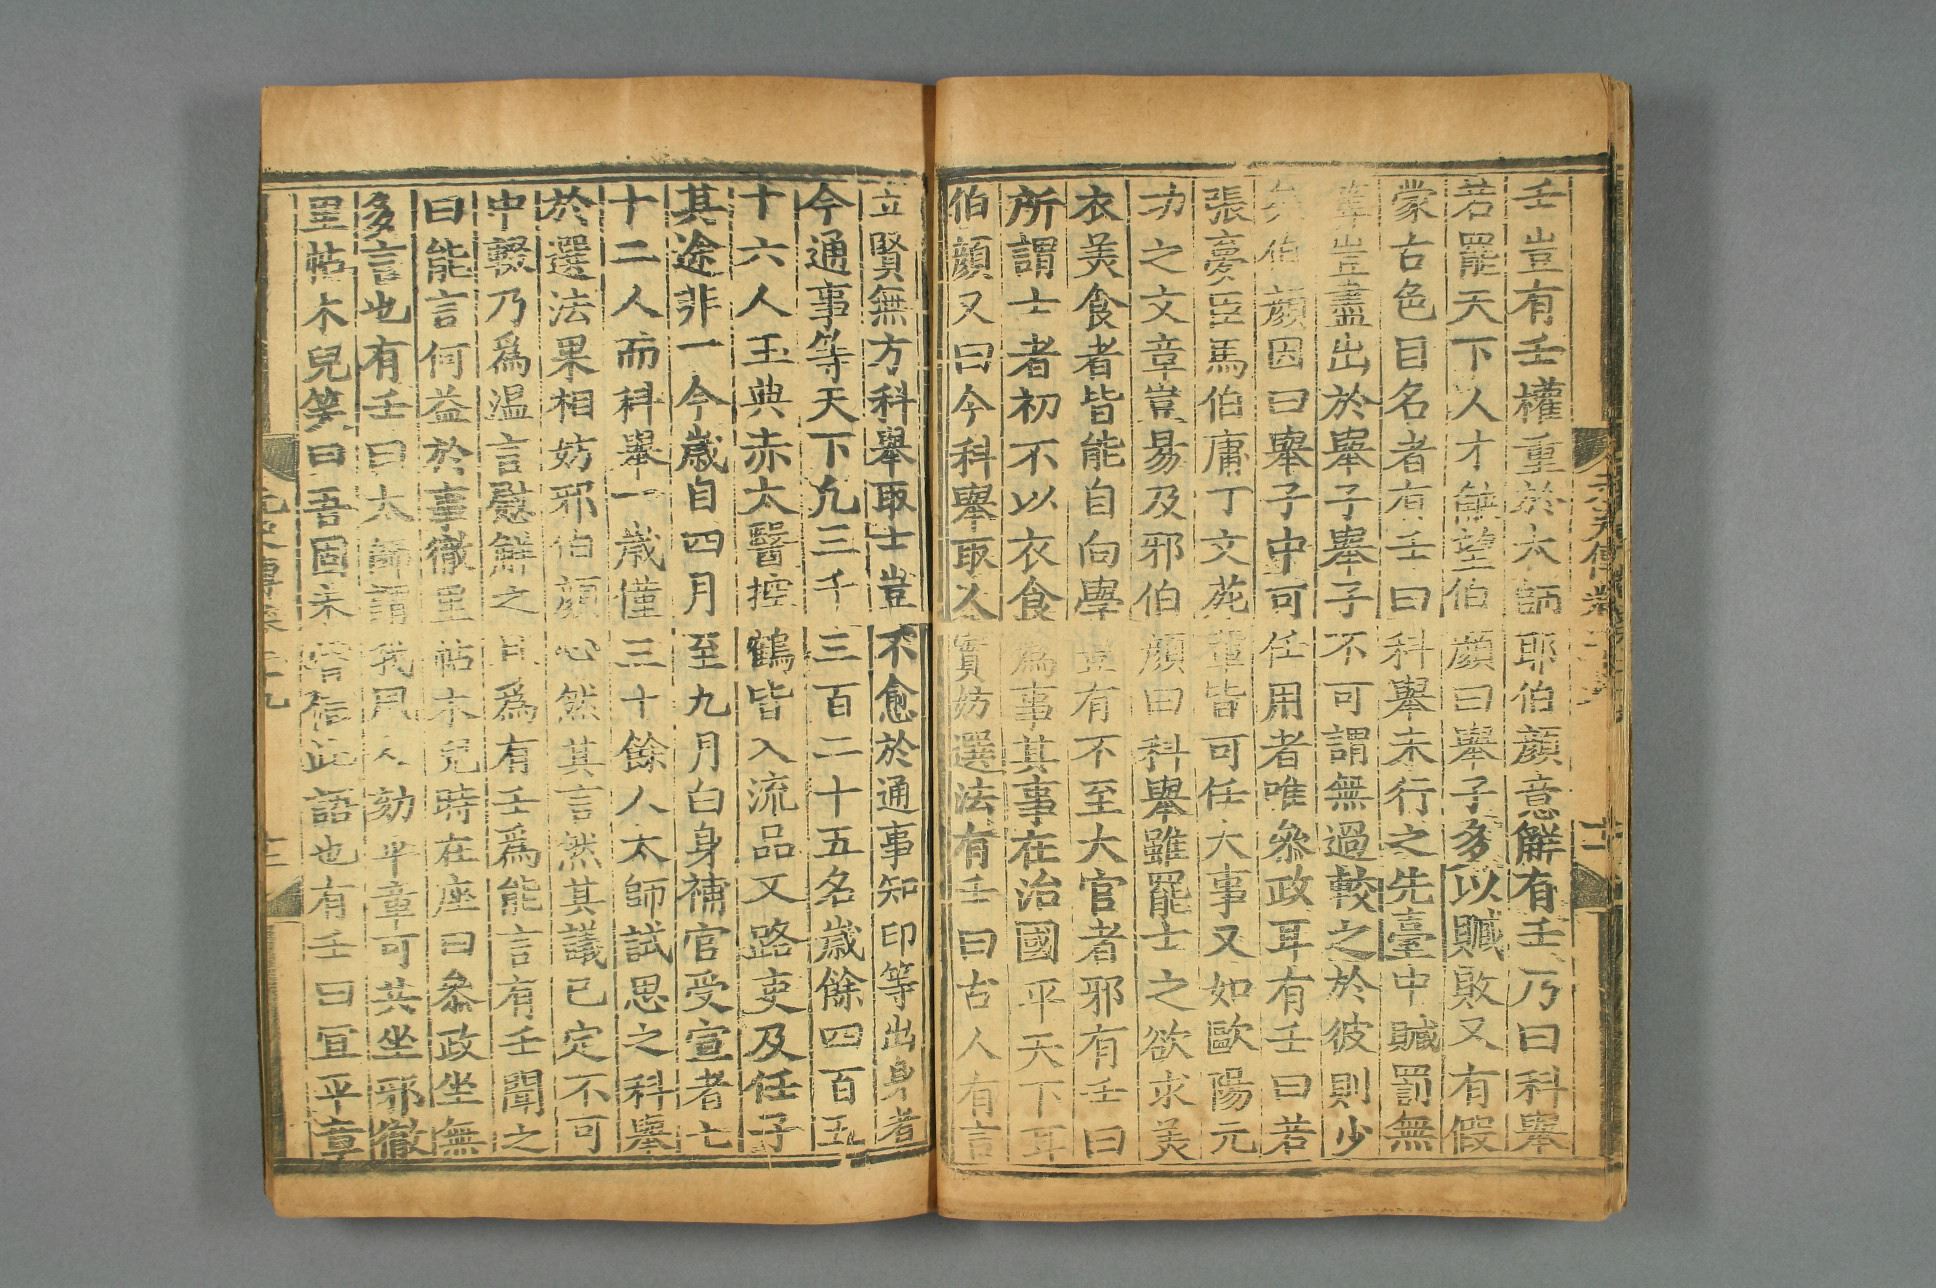 壬豈有壬權重於太師耶伯顔意解有壬乃曰科舉
若罷天下人才觖望伯顔曰舉子多以贓敗又有假
蒙古色目名者有壬曰科舉未行之先臺中贓罰無
筭豈盡出於舉子舉子不可謂無過較之於彼則少
矣伯顔因曰舉子中可任用者唯叅政耳有壬曰若
張夢臣馬伯庸丁文苑輩皆可任大事又如歐陽元
功之文章豈易及邪伯顔曰科舉雖罷士之欲求美
衣美食者皆能自向學豈有不至大官者邪有壬曰
所謂士者初不以衣食為事其事在治國平天下耳
伯顔又曰今科舉取人實妨選法有壬曰古人有言
立賢無方科舉取士豈不愈於通事知印等出身者
今通事等天下凡三千三百二十五名歳餘四百五
十六人玉典赤太醫控鶴皆入流品又路吏及任子
其途非一今歳自四月至九月白身補官受宣者七
十二人而科舉一歳僅三十餘人太師試思之科舉
於選法果相妨邪伯顔心然其言然其議已定不可
中輟乃爲温言慰解之且爲有壬爲能言有壬聞之
曰能言何益於事徹里帖木兒時在座曰叅政坐無
多言也有壬曰太師謂我風人劾平章可共坐邪徹
里帖木兒笑曰吾固未嘗信此語也有壬曰宜平章
元史傳卷二十九
十二